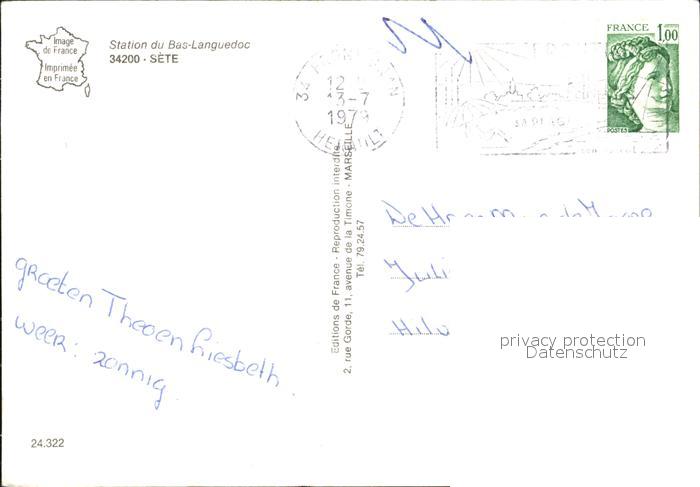 Image
de France
Imprimée
en France
Station du Bas-Languedoc
34200 - SÈTE
12
13-7
1979
HERAULT
FRANCE
1,00
POSTES
Editions de France - Reproduction interdite
2, rue Gorde, 11, avenue de la Timone - MARSEILLE
Tél. 79.24.57
groeten Theo en Liesbeth
weer: zonnig
De Hr
privacy protection
Datenschutz
24.322